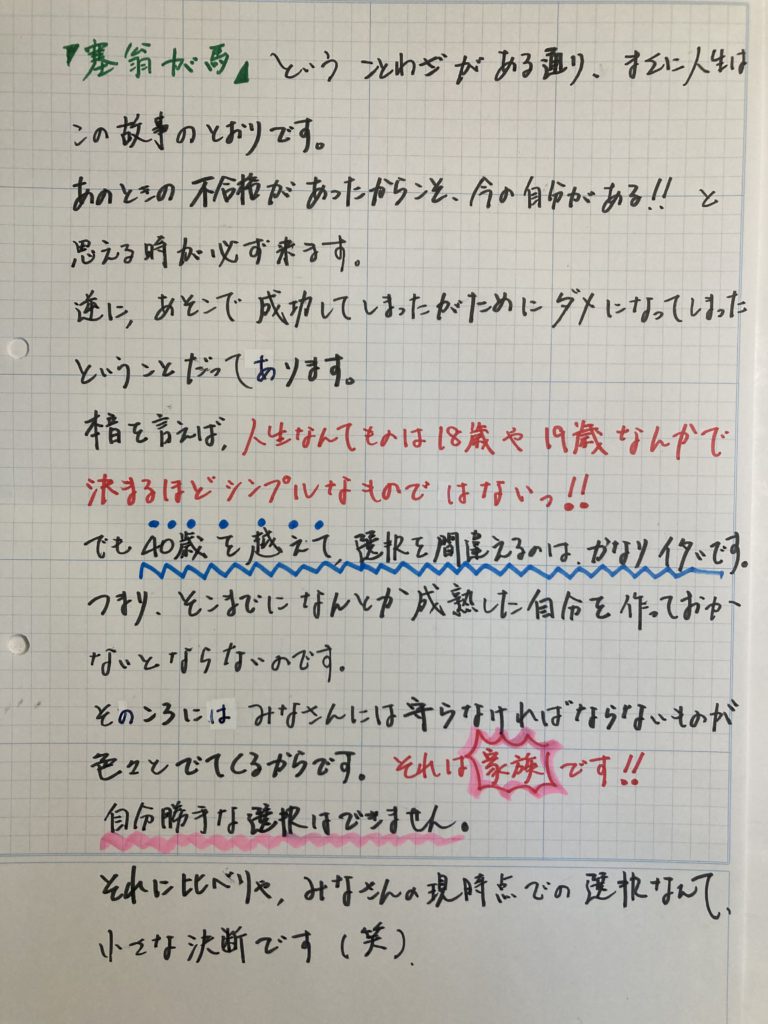 『塞翁が馬』ということわざがある通り、まさに人生は
この故事のとおりです。
あのときの不合格があったからこそ、今の自分がある!! と
思える時が必ず来ます。
逆に、あそこで成功してしまったがためにダメになってしまった
ということだってあります。
本音を言えば、人生なんてものは18歳や19歳なんかで
決まるほどシンプルなものではないっ!!
でも40歳を越えて、選択を間違えるのは、かなりイタいです。
つまり、そこまでになんとか成熟した自分を作っておか
ないとならないのです。
そのころにはみなさんには守らなければならないものが
色々とでてくるからです。それは家族です!!
自分勝手な選択はできません。
それに比べりゃ、みなさんの現時点での選択なんて、
小さな決断です(笑).